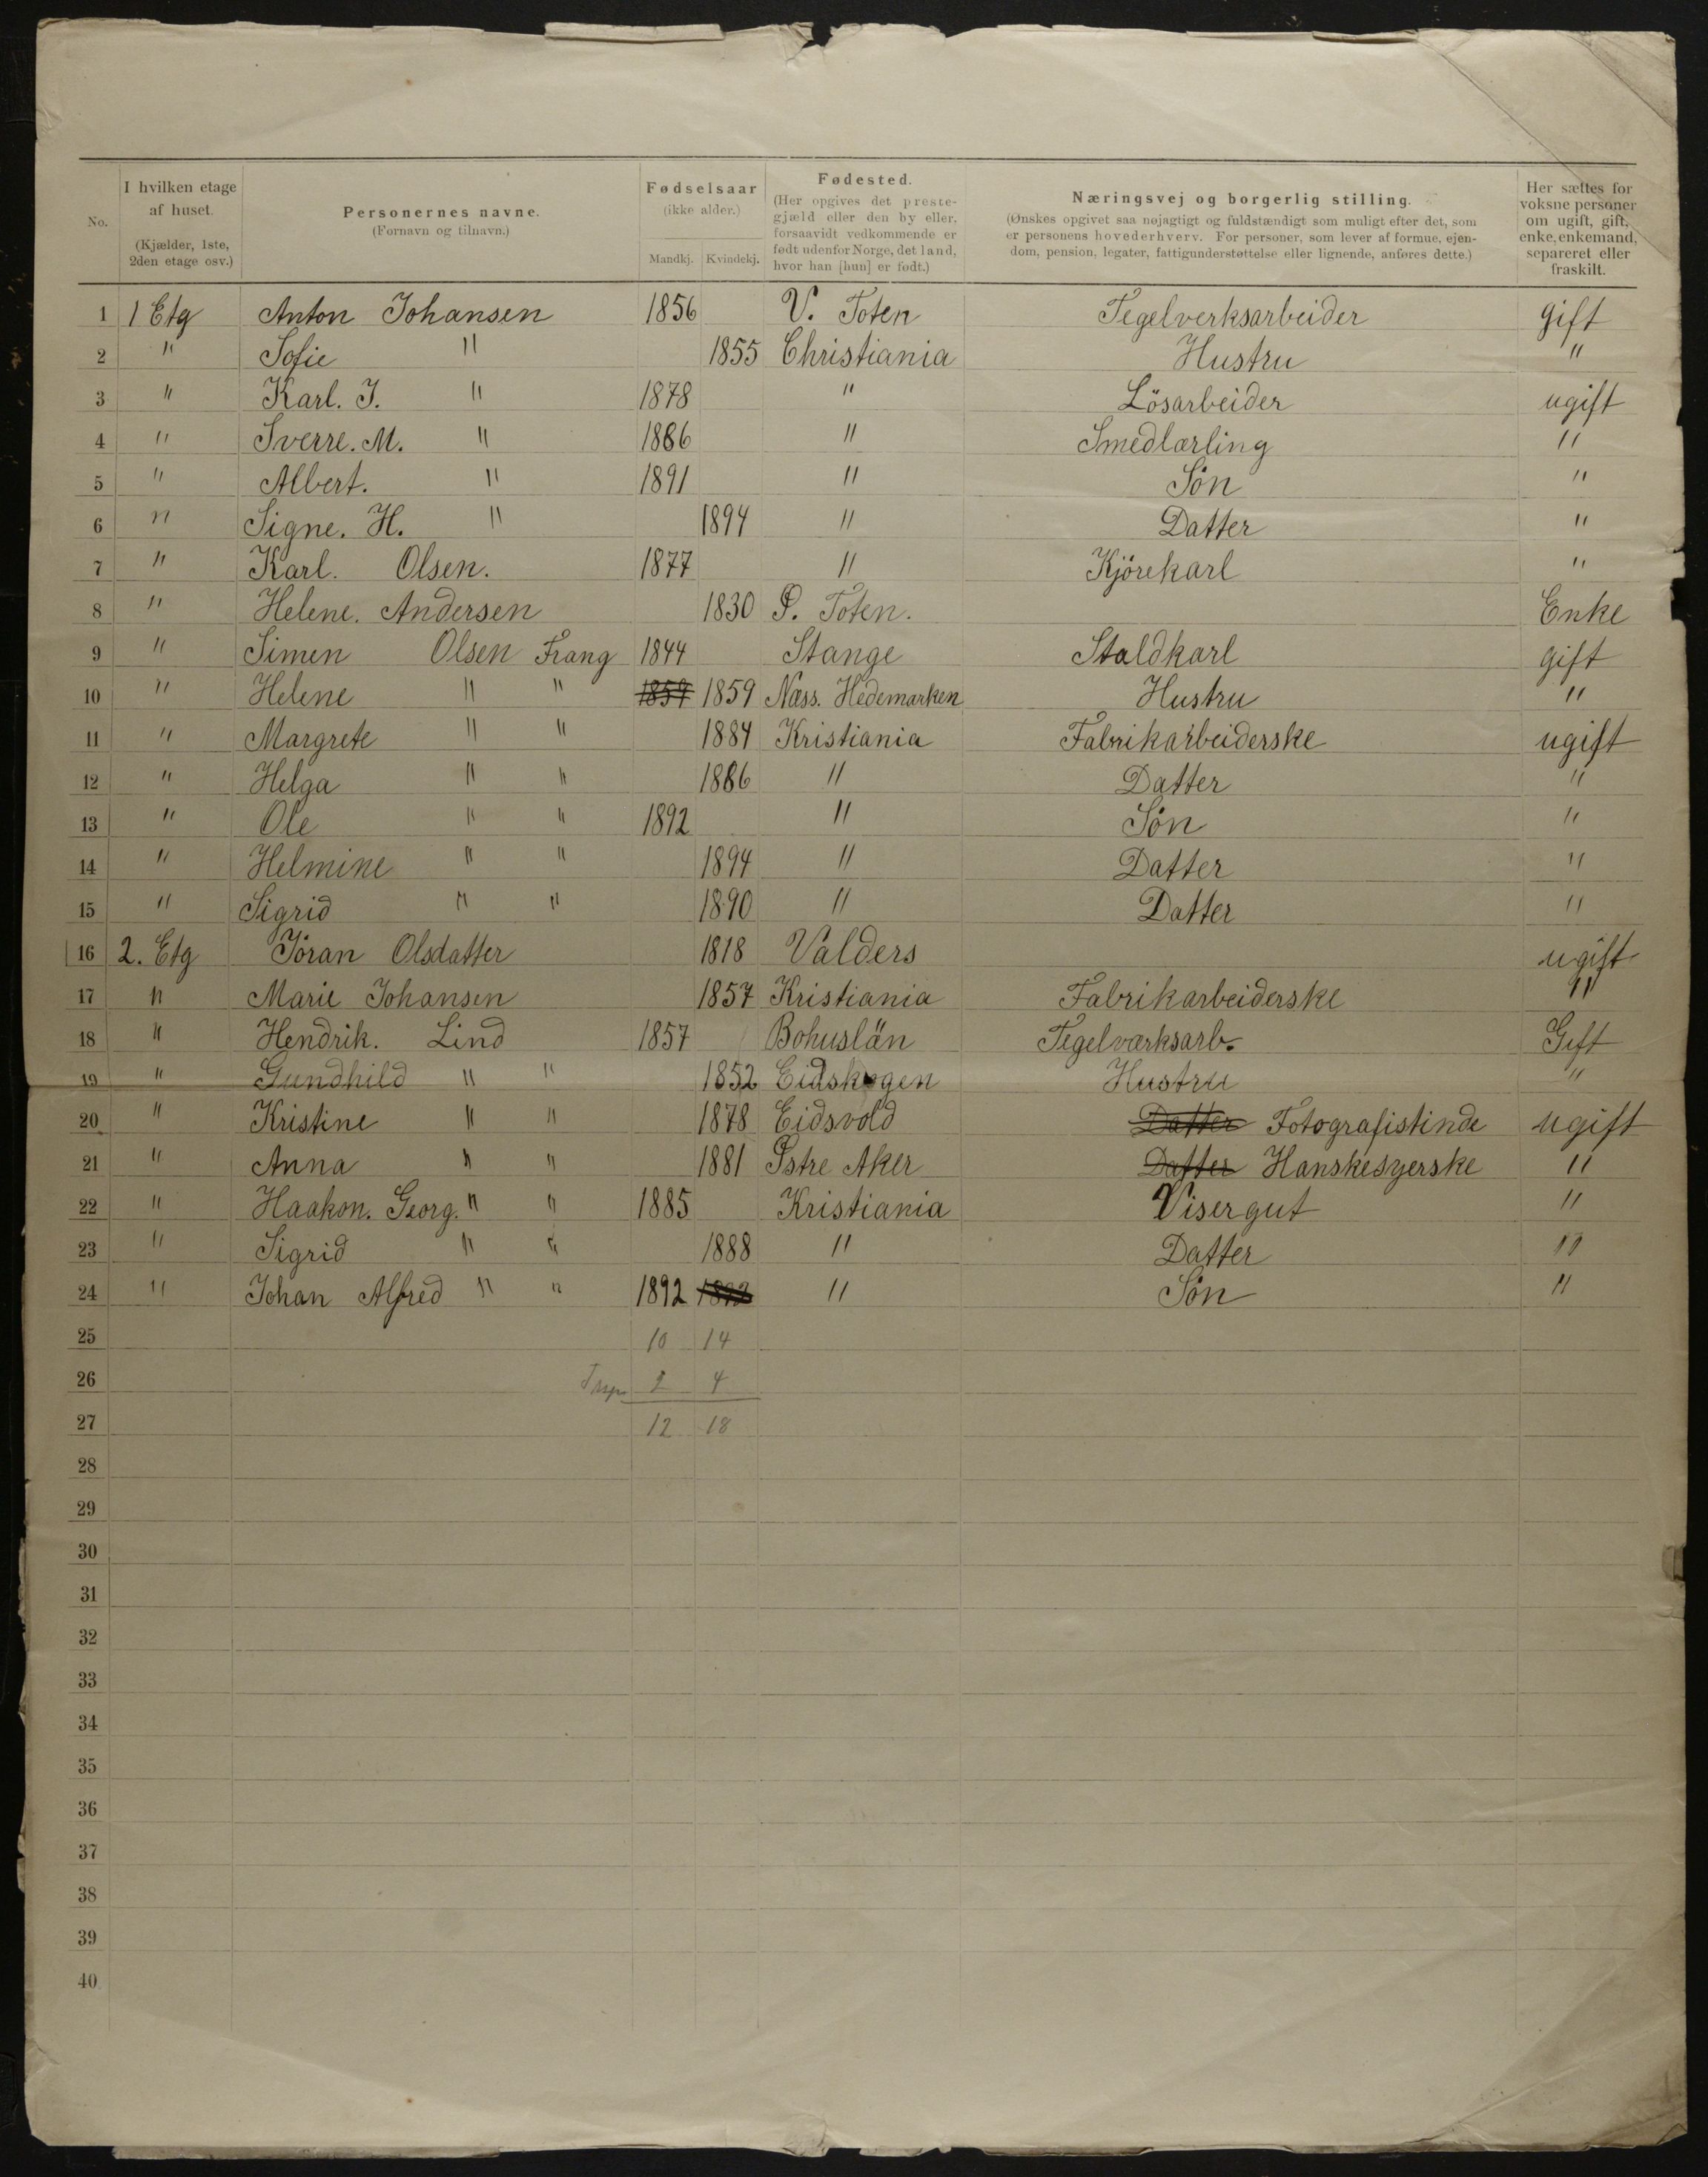 No.
I hvilken etage af huset. (Kjælder, 1ste, 2den etage osv.)
Personernes navne. (Fornavn og tilnavn.)
Fødselsaar (ikke alder.) Mandkj. Kvindekj.
Fødested. (Her opgives det prestegjæld eller den by eller, forsaavidt vedkommende er født udenfor Norge, det land, hvor han [hun] er født.)
Næringsvej og borgerlig stilling. (Ønskes opgivet saa nøjagtigt og fuldstændigt som muligt efter det, som er personens hovederhverv. For personer, som lever af formue, ejendom, pension, legater, fattigunderstøttelse eller lignende, anføres dette.)
Her sættes for voksne personer om ugift, gift, enke, enkemand, separeret eller fraskilt.
1 1 Etg Anton Johansen 1856 V. Toten Tegelverksarbeider gift
2 " Sofie " 1855 Christiania Hustru "
3 " Karl. J. " 1878 " Lösarbeider ugift
4 " Sverre. M. " 1886 " Smedlærling "
5 " Albert. " 1891 " Søn "
6 " Signe. H. " 1894 " Datter "
7 " Karl. Olsen. 1877 " Kjörekarl "
8 " Helene. Andersen 1830 Ø. Toten. Enke
9 " Simen Olsen Frang 1844 Stange Staldkarl gift
10 " Helene " " 1859 1859 Næss. Hedemarken Hustru "
11 " Margrete " " 1884 Kristiania Fabrikarbeiderske ugift
12 " Helga " " 1886 " Datter "
13 " Ole " " 1892 " Søn "
14 " Helmine " " 1894 " Datter "
15 " Sigrid " " 1890 " Datter "
16 2. Etg Jöran Olsdatter 1818 Valders ugift
17 " Marie Johansen 1857 Kristiania Fabrikarbeiderske "
18 " Hendrik. Lind 1857 Bohuslän Tegelværksarb. Gift
19 " Gundhild " " 1852 Eidskogen Hustru "
20 " Kristine " " 1878 Eidsvold Datter Fotografistinde ugift
21 " Anna " " 1881 Østre Aker Datter Hanskesyerske "
22 " Haakon. Georg. " " 1885 Kristiania Visergut "
23 " Sigrid " " 1888 " Datter "
24 " Johan Alfred " " 1892 1892 " Søn "
25 10 14
26 2 4
27 12 18
28
29
30
31
32
33
34
35
36
37
38
39
40